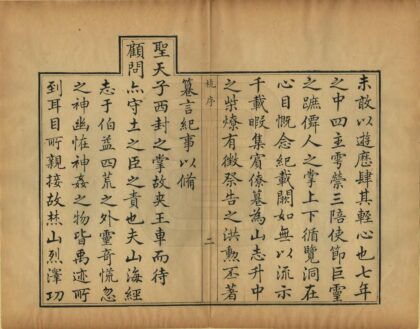 未敢以遊歷肆其輕心也七年
之中四主雩禜三陪使節巨靈
之蹠僊人之掌上下循覽洞在
心目慨念紀載闕如無以流示
千載暇集賓僚纂為山志升中
之柴燎有徵祭告之洪勳丕著
序
二
纂言紀事以備
聖天子西封之掌故夾王車而待
顧問亦守土之臣之責也夫山海經
志于伯益四荒之外靈奇慌忽
之神幽恠神姦之物皆禹迹所
到耳目所親接故焚山烈澤功